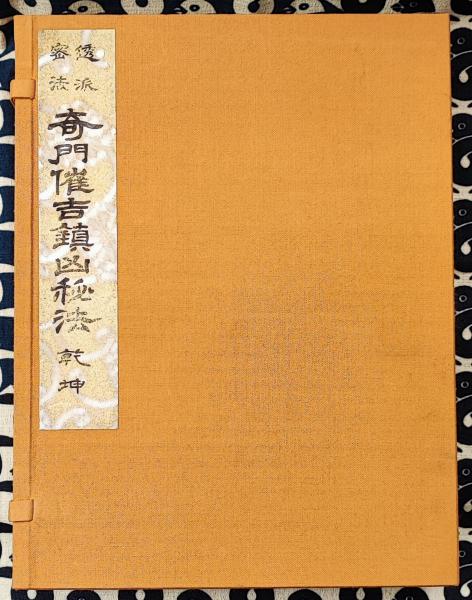 透派
密法
奇門催吉鎮凶秘法
乾坤